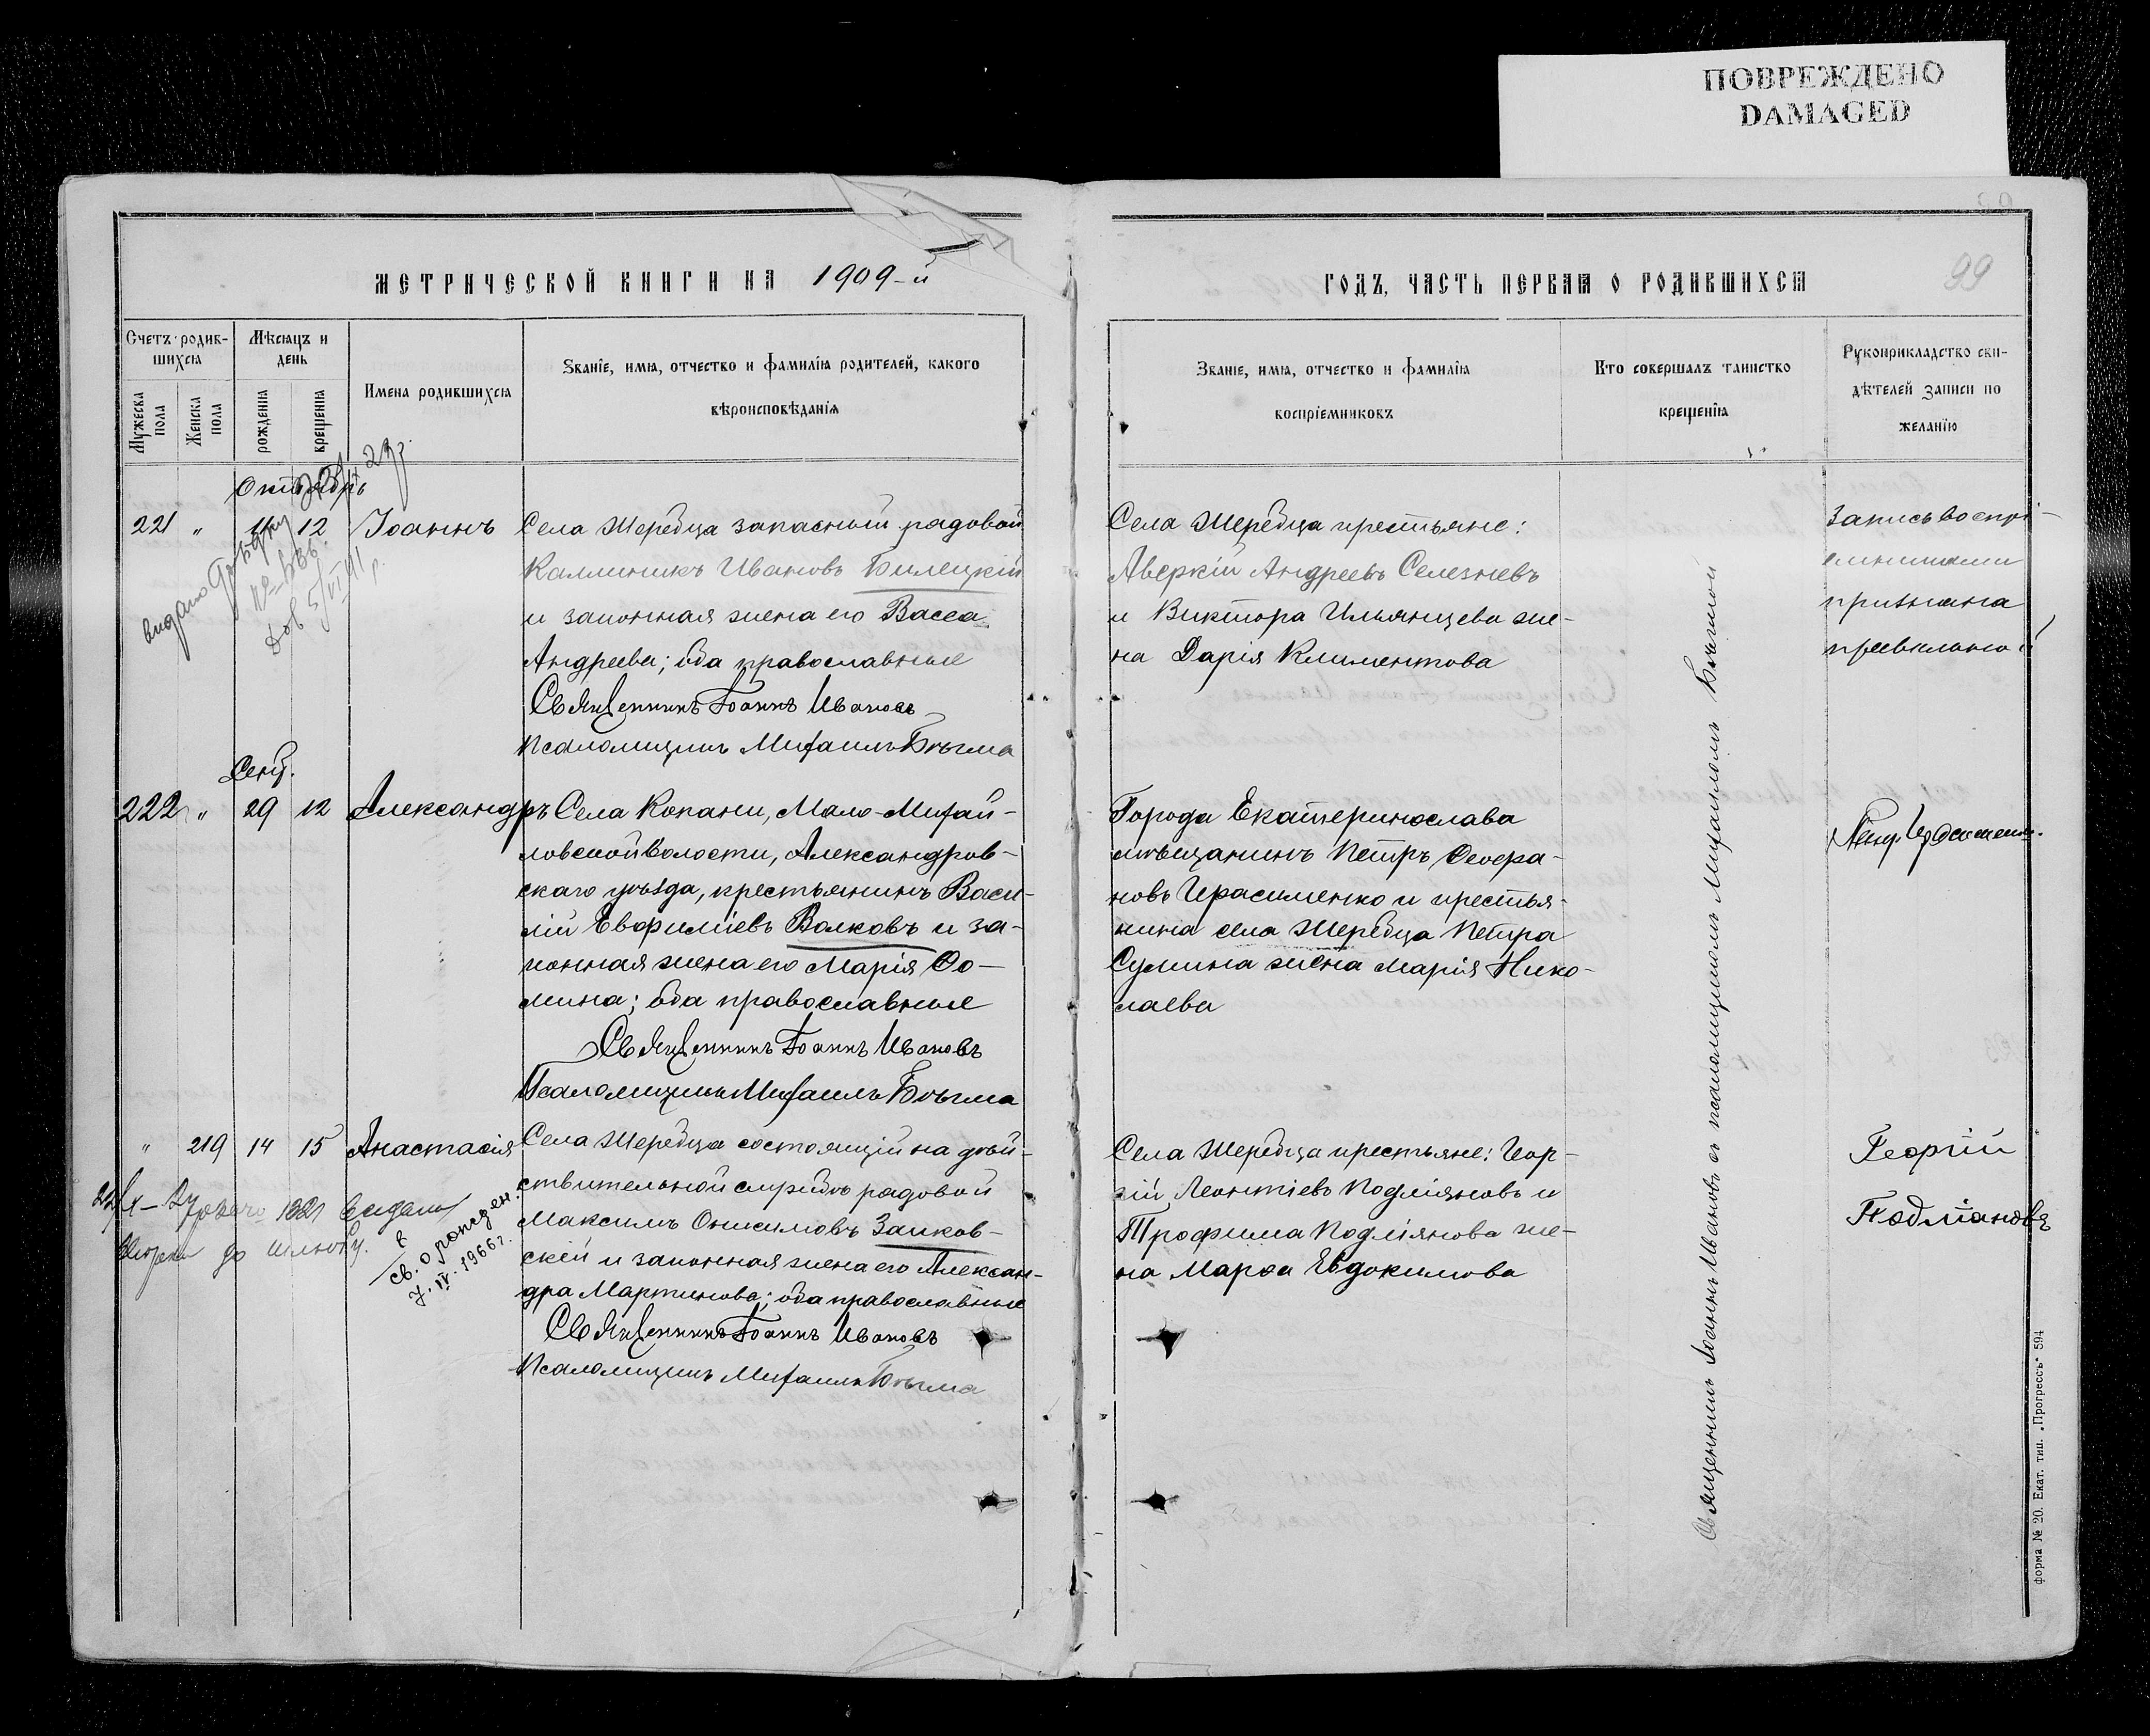 ПОВРЕЖДЕНО
DAMAGED
МЕТРИЧЕСКОЙ КНИГИ НА 1909-й
ГОДЪ, ЧАСТЬ ПЕРВАЯ О РОДИВШИХСЯ
99
Счетъ родив-
шихся
Мужеска пола
Женска пола
Мѣсяцъ и
день
рожденія
крещенія
Имена родившихся
Званіе, имя, отчество и фамилія родителей, какого
вѣроисповѣданія
Званіе, имя, отчество и фамилія
воспріемниковъ
Кто совершалъ таинство
крещенія
Рукоприкладство сви-
дѣтелей записи по
желанію
Октябрь
221 " 11 12 Іоаннъ
Села Жеребца запасный рядовой
Каллиникъ Ивановъ Билецкій
и законная жена его Васса
Андреева; оба православные
Священникъ Іоаннъ Ивановъ
Псаломщикъ Михаилъ Бѣгма
Села Жеребца крестьяне:
Аверкій Андреевъ Селезневъ
и Виктора Ильянцева же-
на Дарія Климентова
Запись воспрі-
емниками
признана
видано
Сент.
222 " 29 12 Александръ
Села Копани, Мало-Михай-
ловской волости, Александров-
скаго уѣзда, крестьянинъ Васи-
лій Евфиміевъ Волковъ и за-
конная жена его Марія Ѳо-
мина; оба православные
Священникъ Іоаннъ Ивановъ
Псаломщикъ Михаилъ Бѣгма
Города Екатеринослава
мѣщанинъ Петръ
новъ Герасименко и крестья-
нина села Жеребца Петра
Сумина жена Марія Нико-
лаева
" 219 14 15 Анастасія
Села Жеребца состоящій на дѣй-
ствительной службѣ рядовой
Максимъ Онисимовъ Заиков-
скій и законная жена его Алексан-
дра Мартинова; оба православные
Священникъ Іоаннъ Ивановъ
Псаломщикъ Михаилъ Бѣгма
Села Жеребца крестьяне: Геор-
гій Леонтіевъ Подліяновъ и
Трофима Подліянова же-
на Марѳа Евдокимова
Георгій
Подліановъ
св. о рожден.
7.IV.1966г.
Священникъ Іоаннъ Ивановъ съ псаломщикомъ Михаиломъ Бѣгмой
форма № 20. Екат. тип. „Прогрессъ" 594